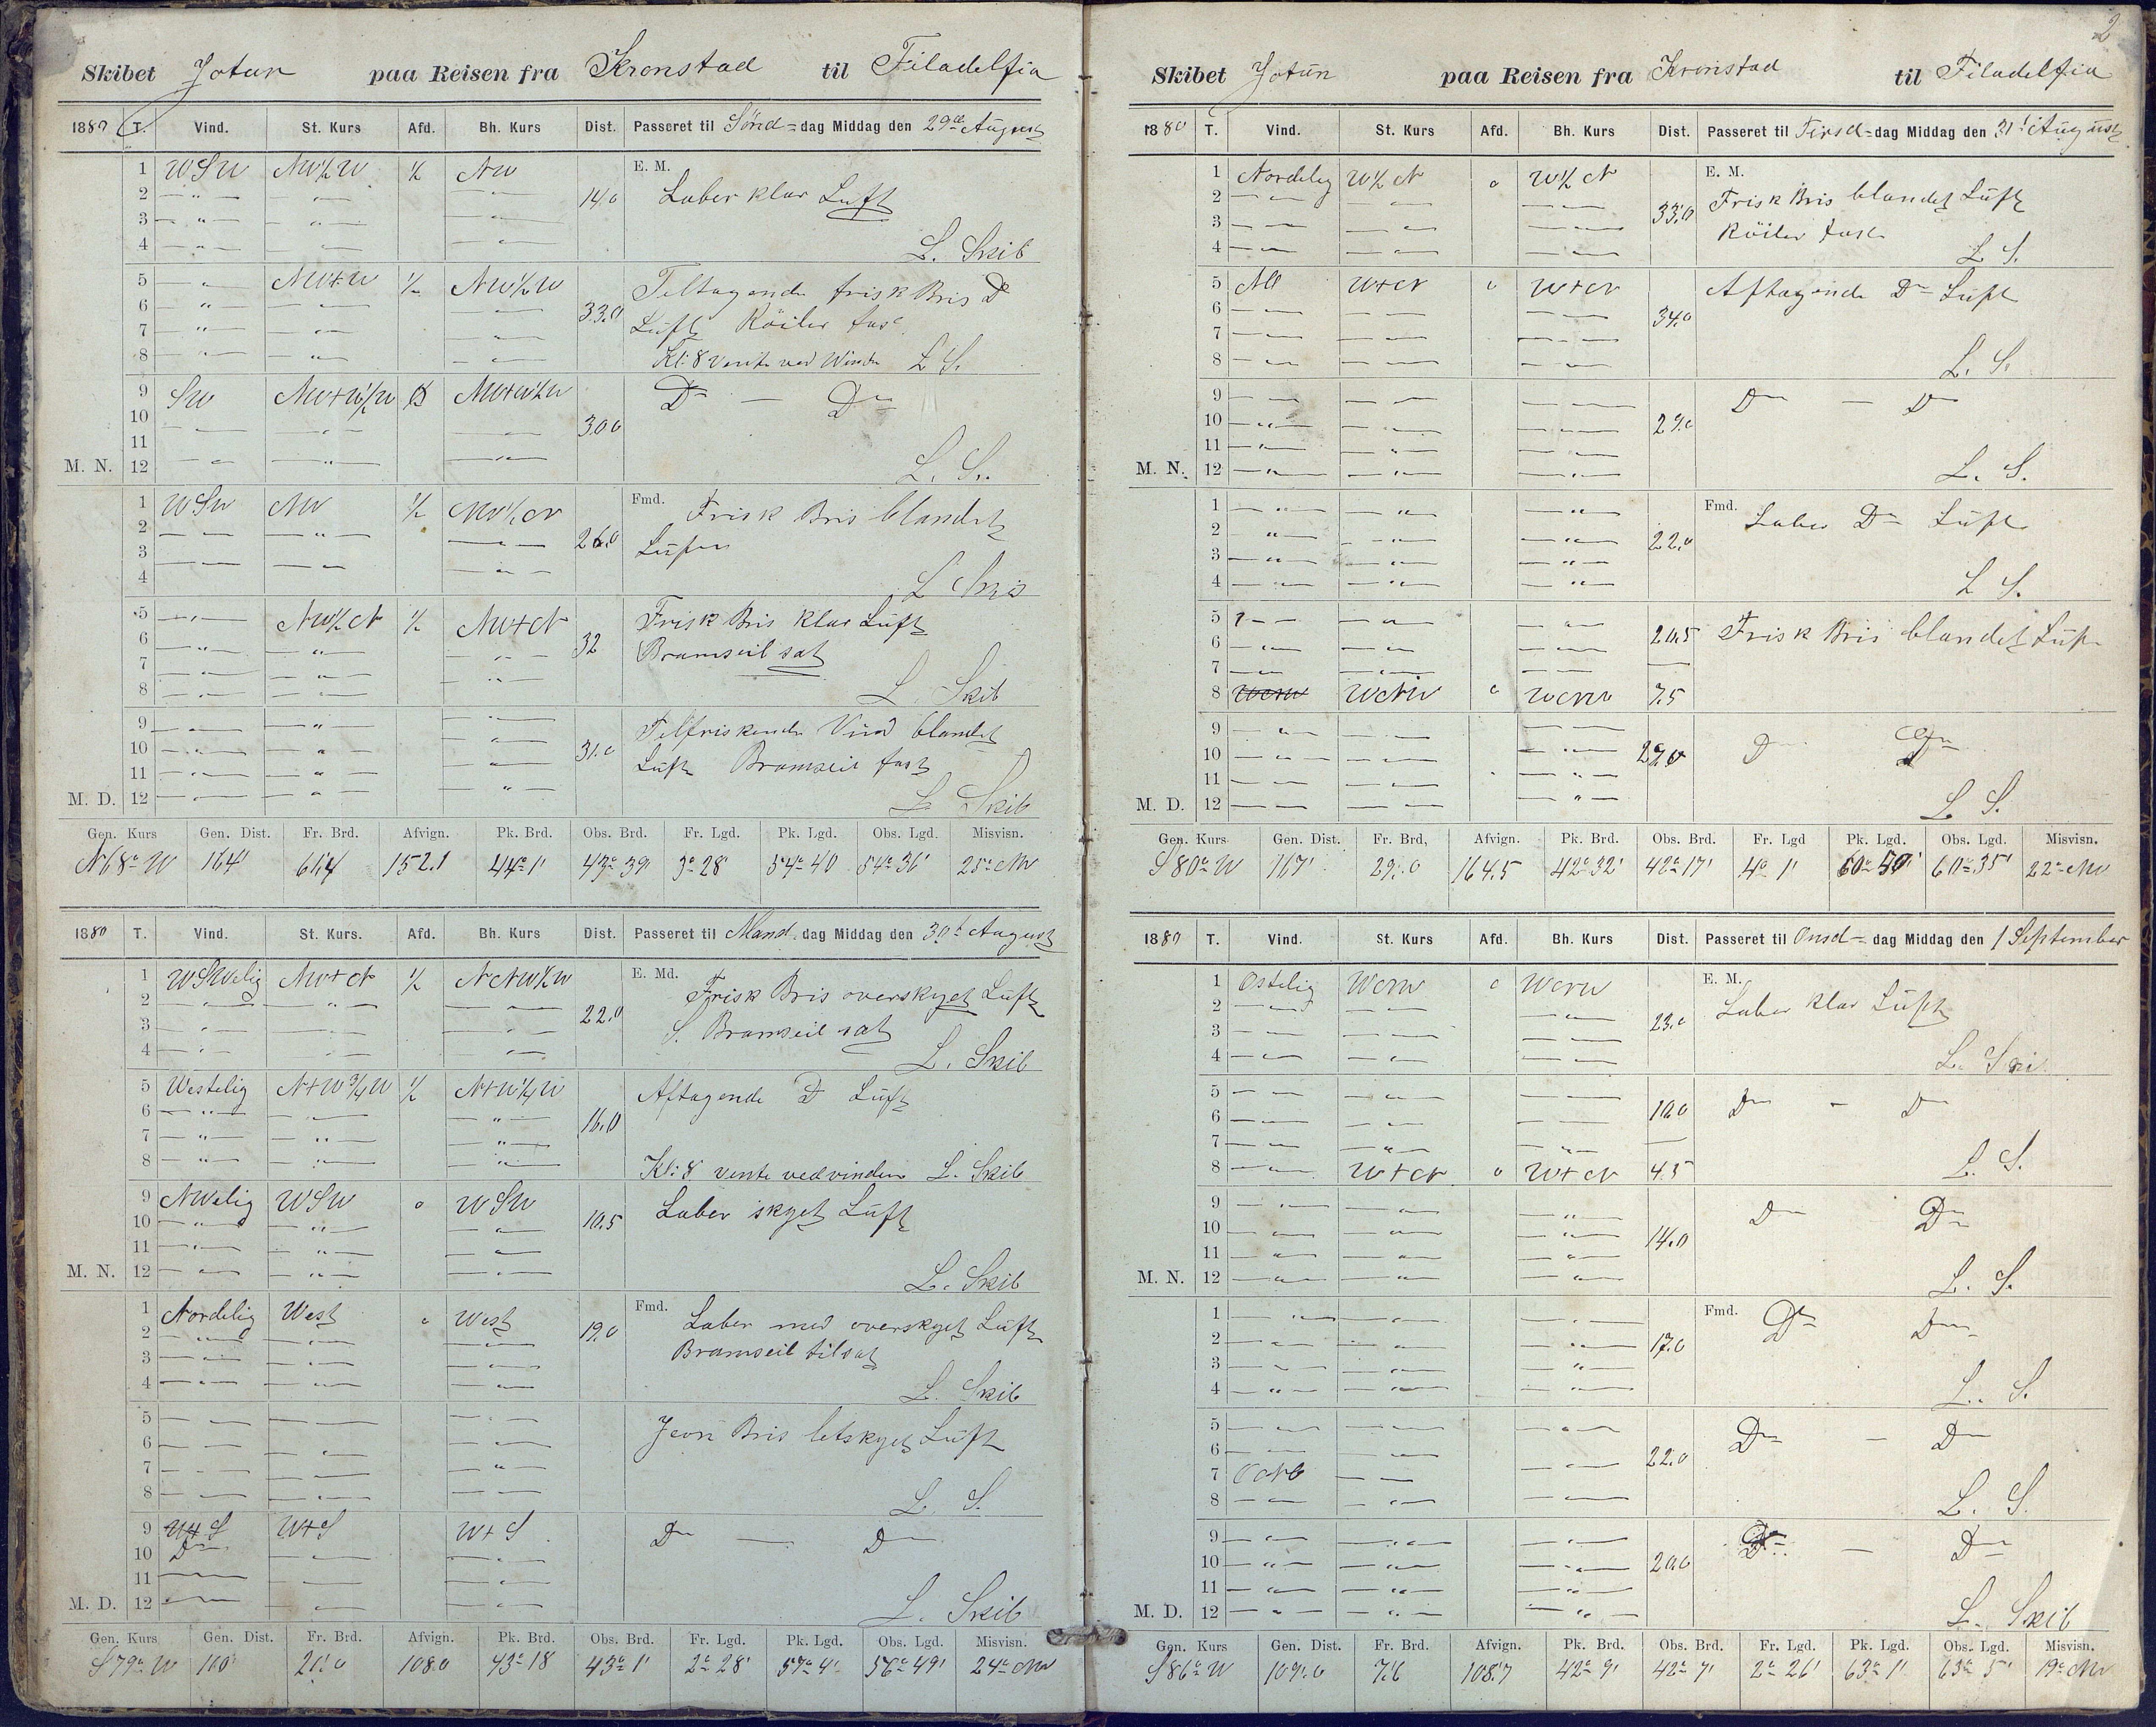 2
Skibet Jotun paa Reisen fra Kronstad til Filadelfia
1880 T. Vind. St. Kurs Afd. Bh. Kurs Dist. Passeret til Sönd=dag Middag den 29de August
1 WSW NW½W ½ NW E. M.
2 14,0 Laber klar Luft
3
4 L. Skib
5 NW+W ½ NW½W Tiltagende frisk Bris D
6 33.0 Luft Röiler fast
7
8 Kl: 8 vente ved Winden L S.
9 SW NW+W½W NW+W½W Do — Do
10 30.0
11
M. N. 12 L. S.
1 WSW NW ½ NW½N Fmd. Frisk Bris blandet
2 26.0 Luft
3
4 L Skib
5 NW½N ½ NW+N Frisk Bris klar Luft
6 32 Bramseil sat
7
8 L. Skib
9 Tilfriskende Vind blandet
10 31.0 Luft Bramseil fast
11
M. D. 12 L Skib
Gen. Kurs Gen. Dist. Fr. Brd. Afvign. Pk. Brd. Obs. Brd. Fr. Lgd. Pk. Lgd. Obs. Lgd. Misvisn.
N68°W 164' 61,4 152.1 44°1' 43°39' 3°28' 54°40 54°36' 25°NW
1880 T. Vind. St. Kurs. Afd. Bh. Kurs Dist. Passeret til Mand. dag Middag den 30t August
1 WSWelig NW+N ½ NNW½W E. Md.
2 22.0 Frisk Bris overskyet Luft
3 S. Bramseil sat
4 L. Skib
5 Westelig N+W¾W ½ N+W¼W Aftagende D Luft
6 16.0
7
8 Kl: 8 vente vedvinden L. Skib
9 NWelig WSW 0 WSW Laber skyet Luft
10 10.5
11
M. N. 12 L. Skib
1 Nordelig West 0 West Fmd. Laber med overskyet Luft
2 19.0 Bramseil tilsat
3
4 L. Skib
5 Jevn Bris letskyet Luft
6
7
8 L. S.
9 W+S W+S W+S Do — Do
10 Do
11
M. D. 12 L. Skib
Gen. Kurs Gen. Dist. Fr. Brd. Afvign. Pk. Brd. Obs. Brd. Fr. Lgd. Pk. Lgd. Obs. Lgd. Misvisn.
S79°W 110' 21'.0 108.0 43°18 43°1' 2°28' 57°4' 56°49' 24°NW
Skibet Jotun paa Reisen fra Kronstad til Filadelfia
1880 T. Vind. St. Kurs Afd. Bh. Kurs Dist. Passeret til Tirsd=dag Middag den 31t August
1 Nordelig W½N 0 W½N E. M.
2 33.0 Frisk Bris blandet Luft
3 Röiler fast
4 L S.
5 NO W+N 0 W+N Aftagende Do Luft
6 34.0
7
8 L. S.
9 Do — Do
10 29.0
11
M. N. 12 L. S.
1 Fmd. Laber Do Luft
2 22.0
3
4 L S.
5 20.5 Frisk Bris blandet Luft
6
7
8 WNW WNW 0 WNW 7.5
9 Do Do
10 29.0
11
M. D. 12 L S.
Gen. Kurs Gen. Dist. Fr. Brd, Afvign. Pk. Brd. Obs. Brd. Fr. Lgd Pk. Lgd. Obs. Lgd. Misvisn.
S80°W 167' 29'.0 164.5 42°32' 42°17' 4°1' 60°50' 60°35' 22°NW
1880 T. Vind. St. Kurs Afd. Bh. Kurs Dist. Passeret til Onsd=dag Middag den 1 September
1 Ostelig WNW 0 WNW E. M.
2 23.0 Laber klar Luft
3
4 L. Skib
5 Do - Do
6 10.0
7
8 W+N 0 W+N 4.5 L. S.
9 Do Do
10 14.0
11
M. N. 12 L. S.
1 Fmd. Do Do
2 17.0
3
4 L. S.
5 Do — Do
6 22.0
7 ONO
8 L. S.
9 Do — Do
10 20.0
11
M. D. 12 L. Skib
Gen. Kurs Gen. Dist. Fr. Brd. Afvign. Pk. Brd. Obs. Brd. Fr. Lgd. Pk. Lgd. Obs. Lgd. Misvisn.
S86°W 109'.0 7.6 108.7 42°9' 42°7' 2°26' 63°1' 63°5' 19°NW